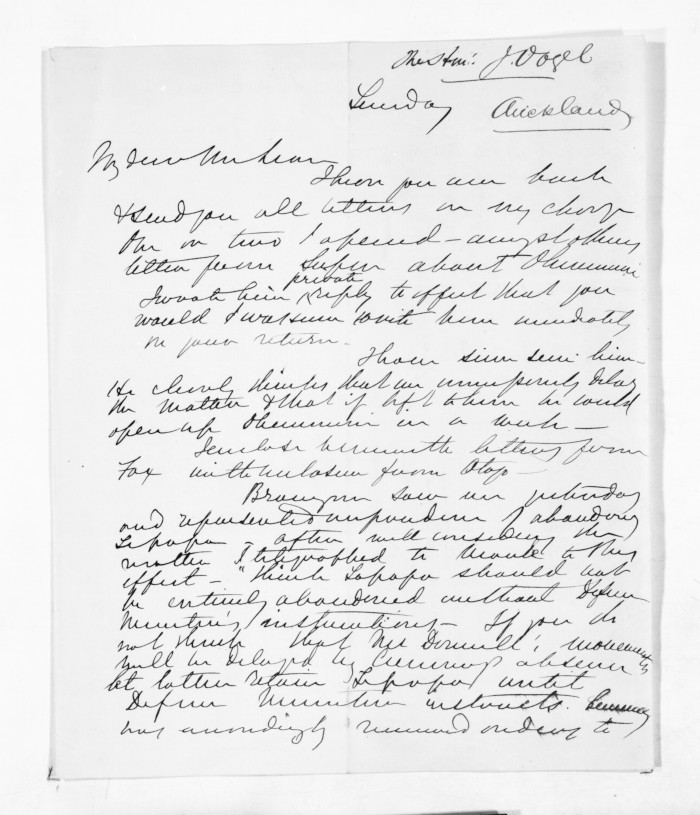 The Hon: J. Vogel
Sunday Auckland
My dear McLean
I hear you are back
& send you all letters in my charge
One or two I opened — amongst others
letter from Super about Ohinemuri
I wrote him private reply to effect that you
would I was sure write him immediately
on your return.
I have since seen him —
He clearly thinks that we delay
the matter & that if left to him he could
open up Ohinemuri in a week —
I enclose herewith letters from
Fox with enclosure from Otago —
Branigan saw me yesterday
and represented imprudence of abandoning
Tapapa — after well considering the
matter I telegraphed to Moule to this
effect — "Think Tapapa should not
be entirely abandered without Defence
Minister's instructions — If you do
not think that McDonnell's movements
will be delayed by Cumming's absence
let latter retain Tapapa until
Defence Minister instructs.
was accordingly received orders to